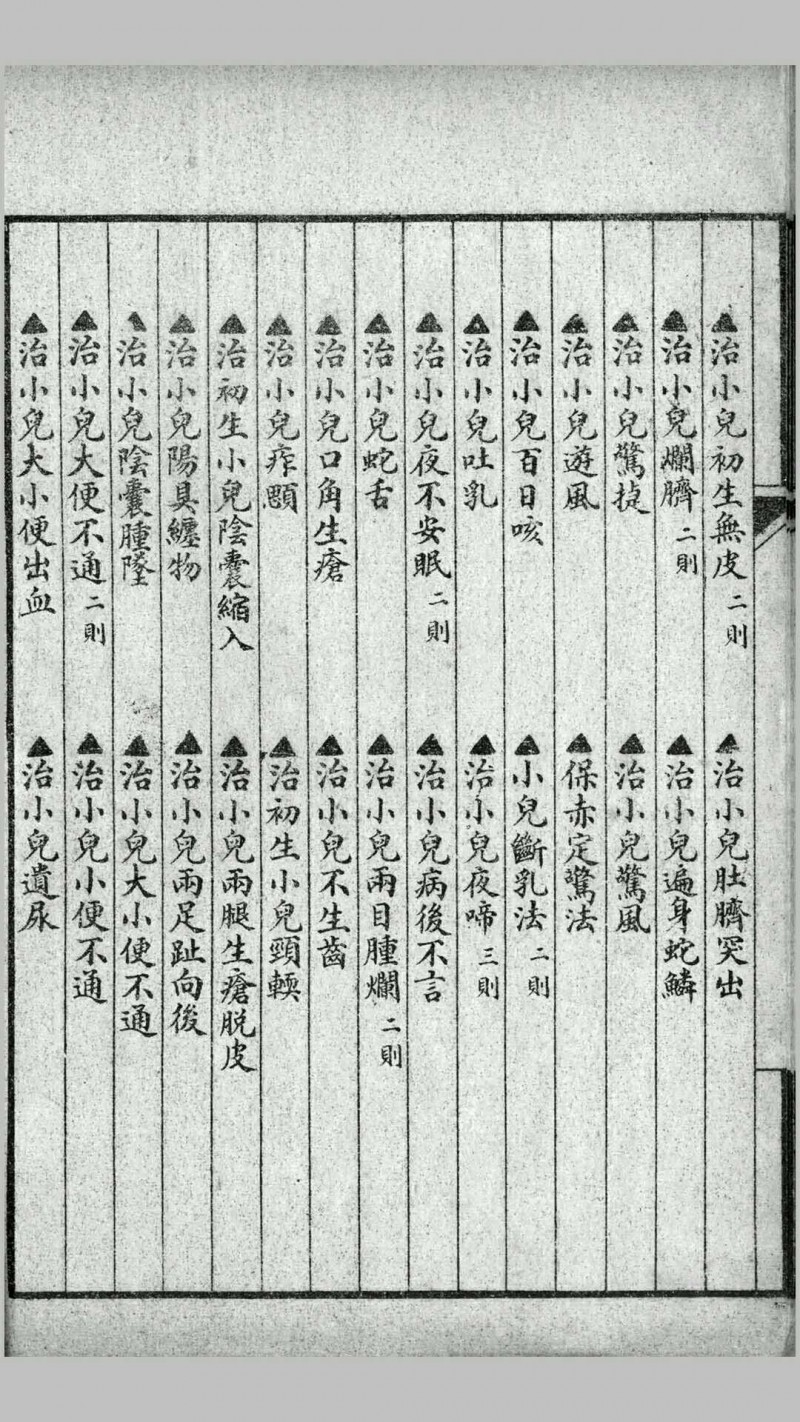 ▲治小兒初生無皮二則 ▲治小兒肚臍突出
▲治小兒爛臍二則 ▲治小兒遍身蛇鱗
▲治小兒驚㨗 ▲治小兒驚風
▲治小兒遊風 ▲保赤定驚法
▲治小兒百日咳 ▲小兒斷乳法二則
▲治小兒吐乳 ▲治小兒夜啼三則
▲治小兒夜不安眠二則 ▲治小兒病後不言
▲治小兒蛇舌 ▲治小兒兩目腫爛二則
▲治小兒口角生瘡 ▲治小兒不生齒
▲治小兒痄顋 ▲治初生小兒頸輭
▲治初生小兒陰囊縮入 ▲治小兒兩腿生瘡脱皮
▲治小兒陽具纏物 ▲治小兒兩足趾向後
▲治小兒陰囊腫墜 ▲治小兒大小便不通
▲治小兒大便不通二則 ▲治小兒小便不通
▲治小兒大小便出血 ▲治小兒遺尿